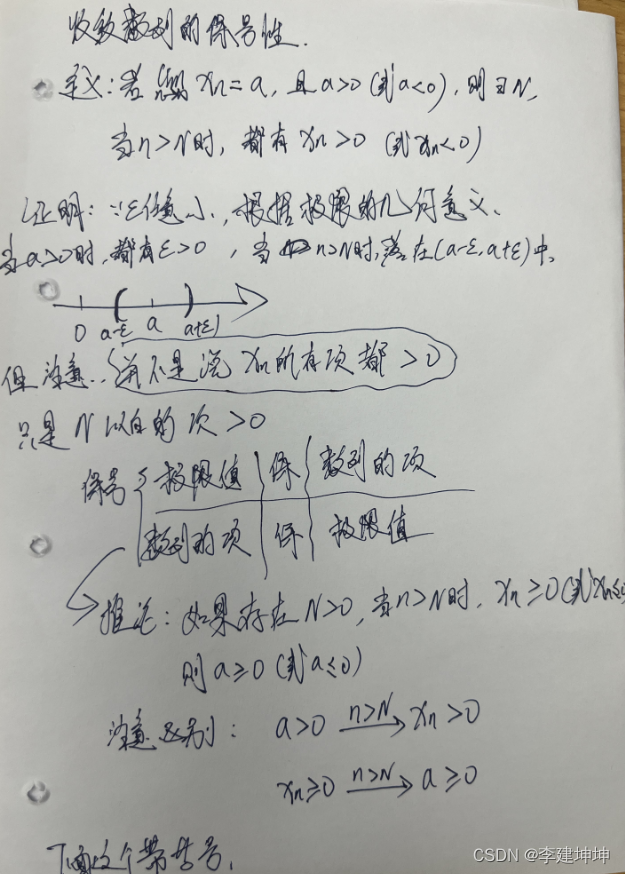 收敛数列的保号性.
定义:若 lim xn = a, 且 a>0 (或 a<0), 则∃N,
当 n>N 时, 都有 xn>0 (或 xn<0)
证明: ∵ε任意小, 根据极限的几何意义、
当a>0时, 都有ε>0, 当 n>N时, 落在(a-ε, a+ε)中,
0 a-ε a a+ε
但注意.. 并不是说 xn的有项都>0
只是N以后的项>0
保号 { 极限值 | 保 | 数列的项
数列的项 | 保 | 极限值
推论: 如果存在N>0, 当n>N时, xn≥0 (或 xn≤0
则 a≥0 (或 a≤0)
注意区别: a>0 n>N→ xn>0
xn≥0 n>N→ a≥0
下面这个带等号.
CSDN @李建坤坤